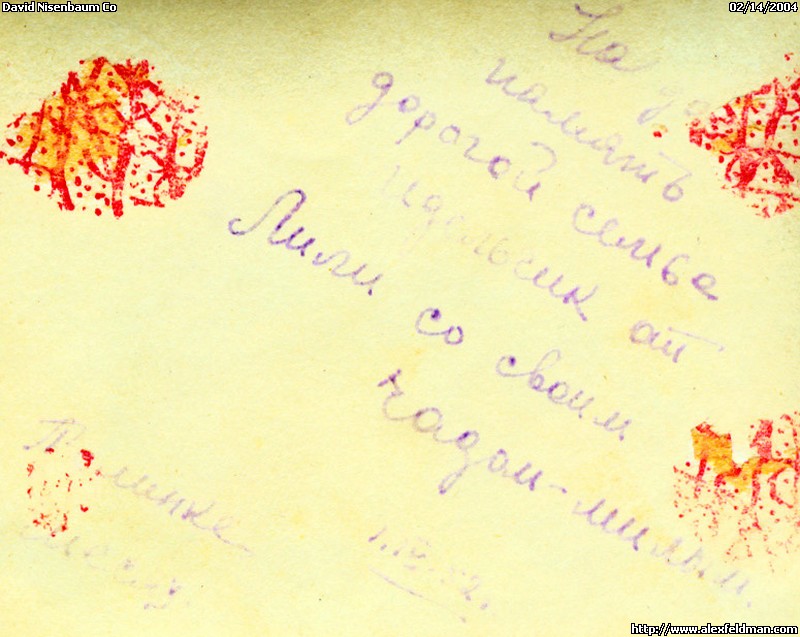 David Nisenbaum Co
02/14/2004
На до
память
дорогой семье
Идельчик от
Лили со своим
чадом-милым.
линке
1.IV.52.
http://www.alexfeldman.com